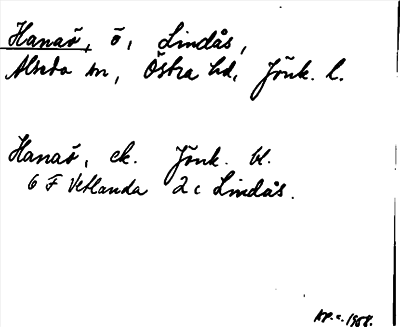 Hanaö, ö, Lindås,
Alseda sn, Östra hd, Jönk. l.
Hanaö, ek. Jönk. bl.
6 F Vetlanda 2 c Lindås.
1958.